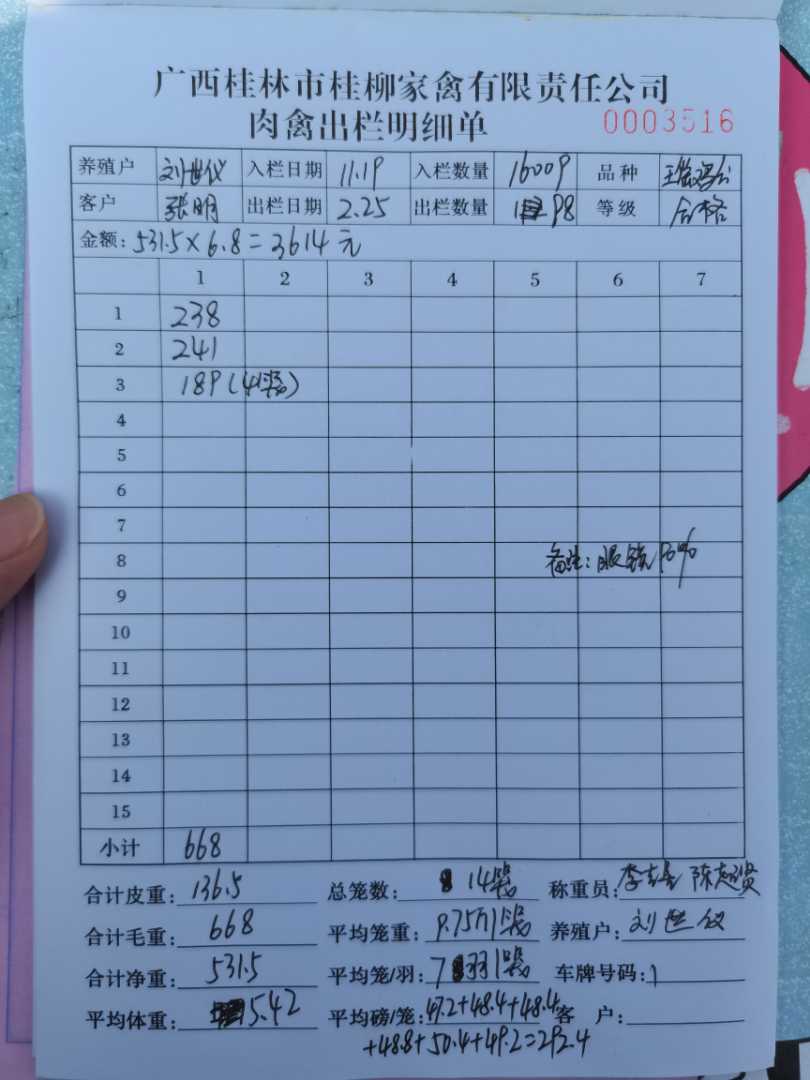 广西桂林市桂柳家禽有限责任公司
肉禽出栏明细单 0003516
养殖户 刘世仪 入栏日期 11.19 入栏数量 16009 品种
客户 张明 出栏日期 2.25 出栏数量 98 等级 合格
金额: 531.5×6.8=3614元
1 2 3 4 5 6 7
1 238
2 241
3 189(4笼)
4
5
6
7
8 备注: 眼镜
9
10
11
12
13
14
15
小计 668
合计皮重: 136.5 总笼数: 14笼 称重员:
合计毛重: 668 平均笼重: 9.75斤/笼 养殖户: 刘世仪
合计净重: 531.5 平均笼/羽: 7羽/笼 车牌号码:
平均体重: 5.42 平均磅/笼: 47.2+48.4+48.4 客 户:
+48.8+50.4+49.2=292.4